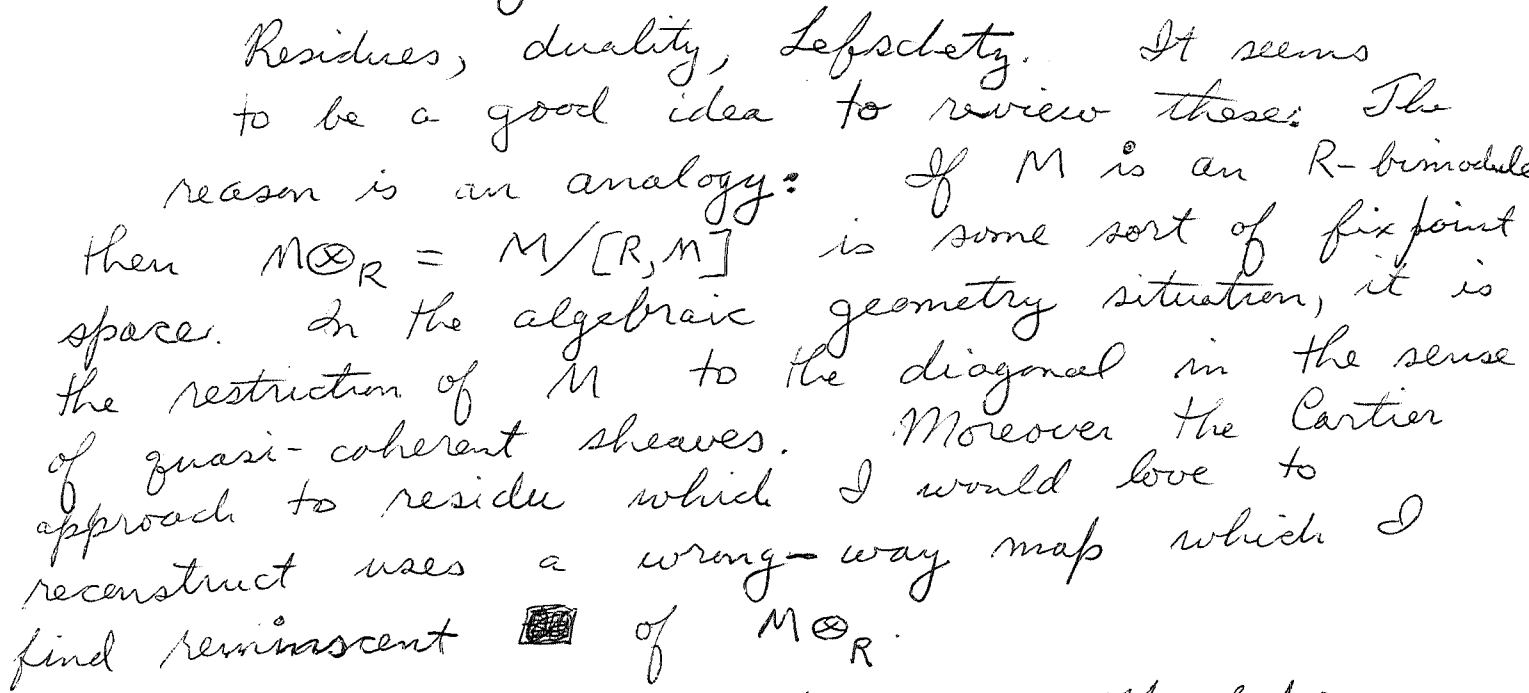 Residues, duality, Lefschetz. It seems
to be a good idea to review these: The
reason is an analogy: If M is an R-bimodule
then M⊗_R = M/[R,M] is some sort of fixpoint
space. In the algebraic geometry situation, it is
the restriction of M to the diagonal in the sense
of quasi-coherent sheaves. Moreover the Cartier
approach to residue which I would love to
reconstruct uses a wrong-way map which I
find reminiscent of M⊗_R.